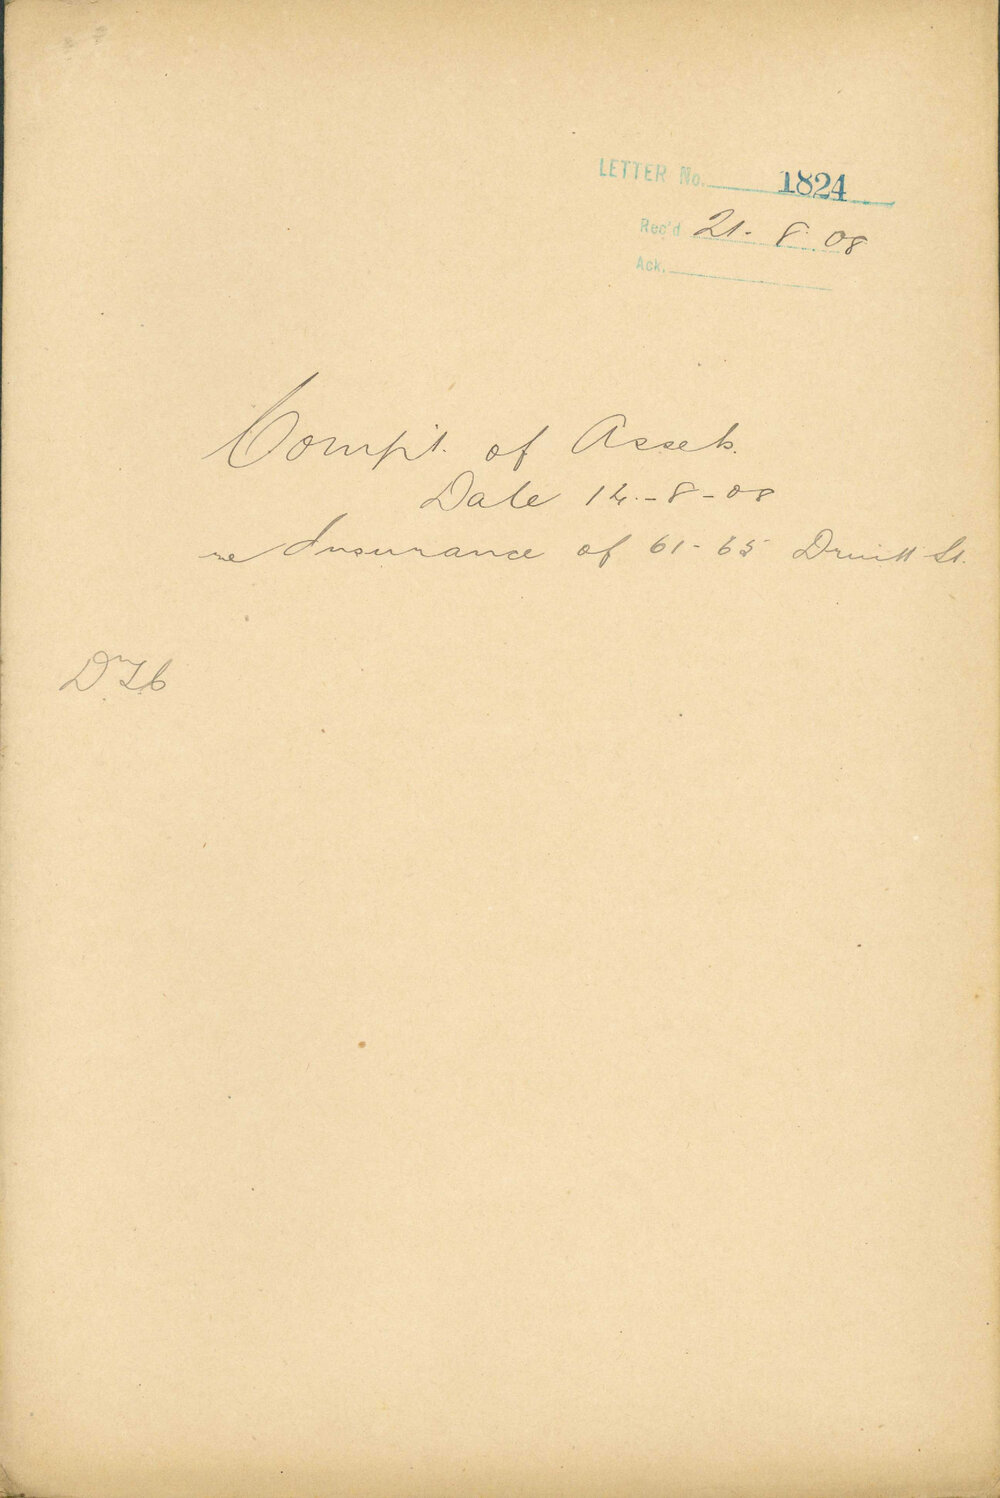 LETTER No. 1824
Rec'd 21. 8. 08
Ack.
Compt. of Assets.
Date 14.-8-08
re Insurance of 61-65 Druitt St.